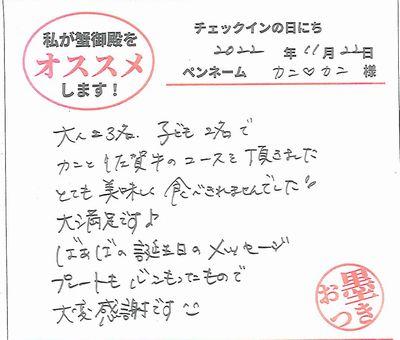 私が蟹御殿を
オススメ
します!
チェックインの日にち
2022年11月22日
ペンネーム カニ♡カニ 様
大人3名、子ども2名で
カニと佐賀牛のコースを頂きました
とても美味しく食べきれませんでした
大満足です♪
ばぁばの誕生日のメッセージ
プレートも心こもったもので
大変感謝です
墨
おつき